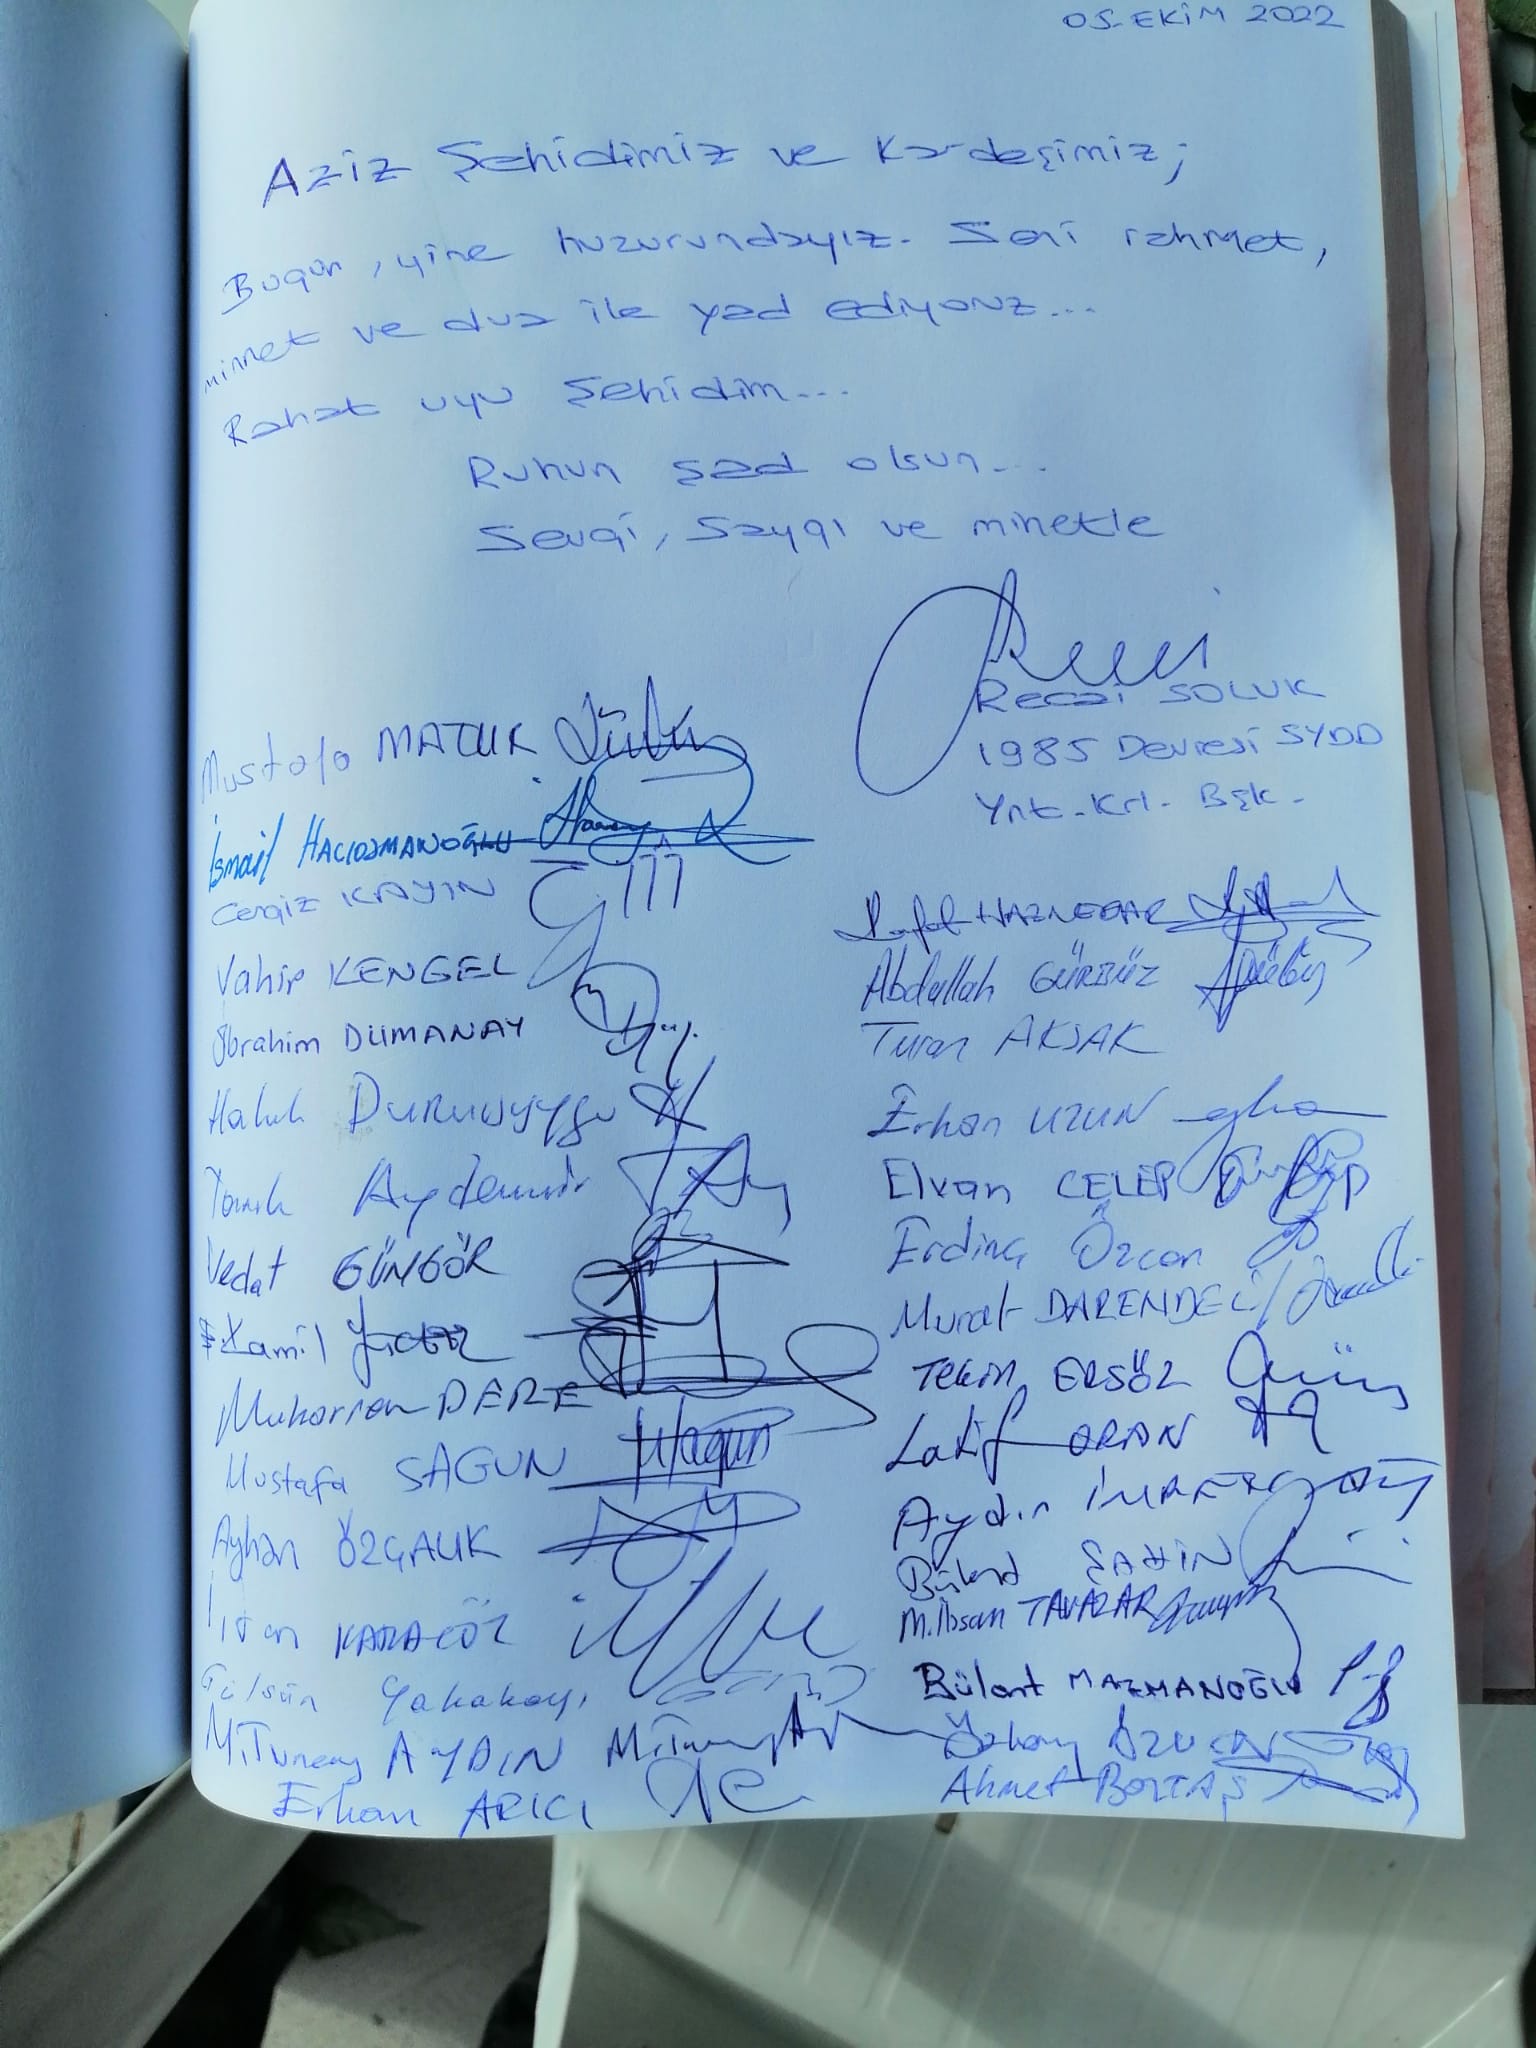 05-EKİM 2022
Aziz Şehidimiz ve Kardeşimiz;
Bugün, yine huzurundayız. Seni rahmet,
minnet ve dua ile yad ediyoruz...
Rahat uyu Şehidim...
Ruhun şad olsun...
Sevgi, Saygı ve minetle
Recai SOLUK
1985 Devresi SYDD
Ynt. Krl. Bşk.
Mustafa MATUR
İsmail HACIOSMANOĞLU
Cengiz KAYIN
Vahip KENGEL
İbrahim DUMANAY
Haluk Duruuygu
Tarık Aydemir
Vedat GÜNGÖR
Kamil
Muharrem DERE
Mustafa SAGUN
Ayhan ÖZÇALIK
KARAGÖZ
Gülsün Yakakayı
M.Tuncay AYDIN
Erhan ARICI
HAZNEDAR
Abdullah GÜRBÜZ
Turan AKSAK
Erhan UZUN
Elvan CELEP
Erdinç Özcan
Murat DARENDELİ
Tekin ERSÖZ
Latif ORAN
Aydın
Bülend ŞAHİN
M.İhsan TAVAZAR
Bülent MAZMANOĞLU
Ahmet BOZTAŞ